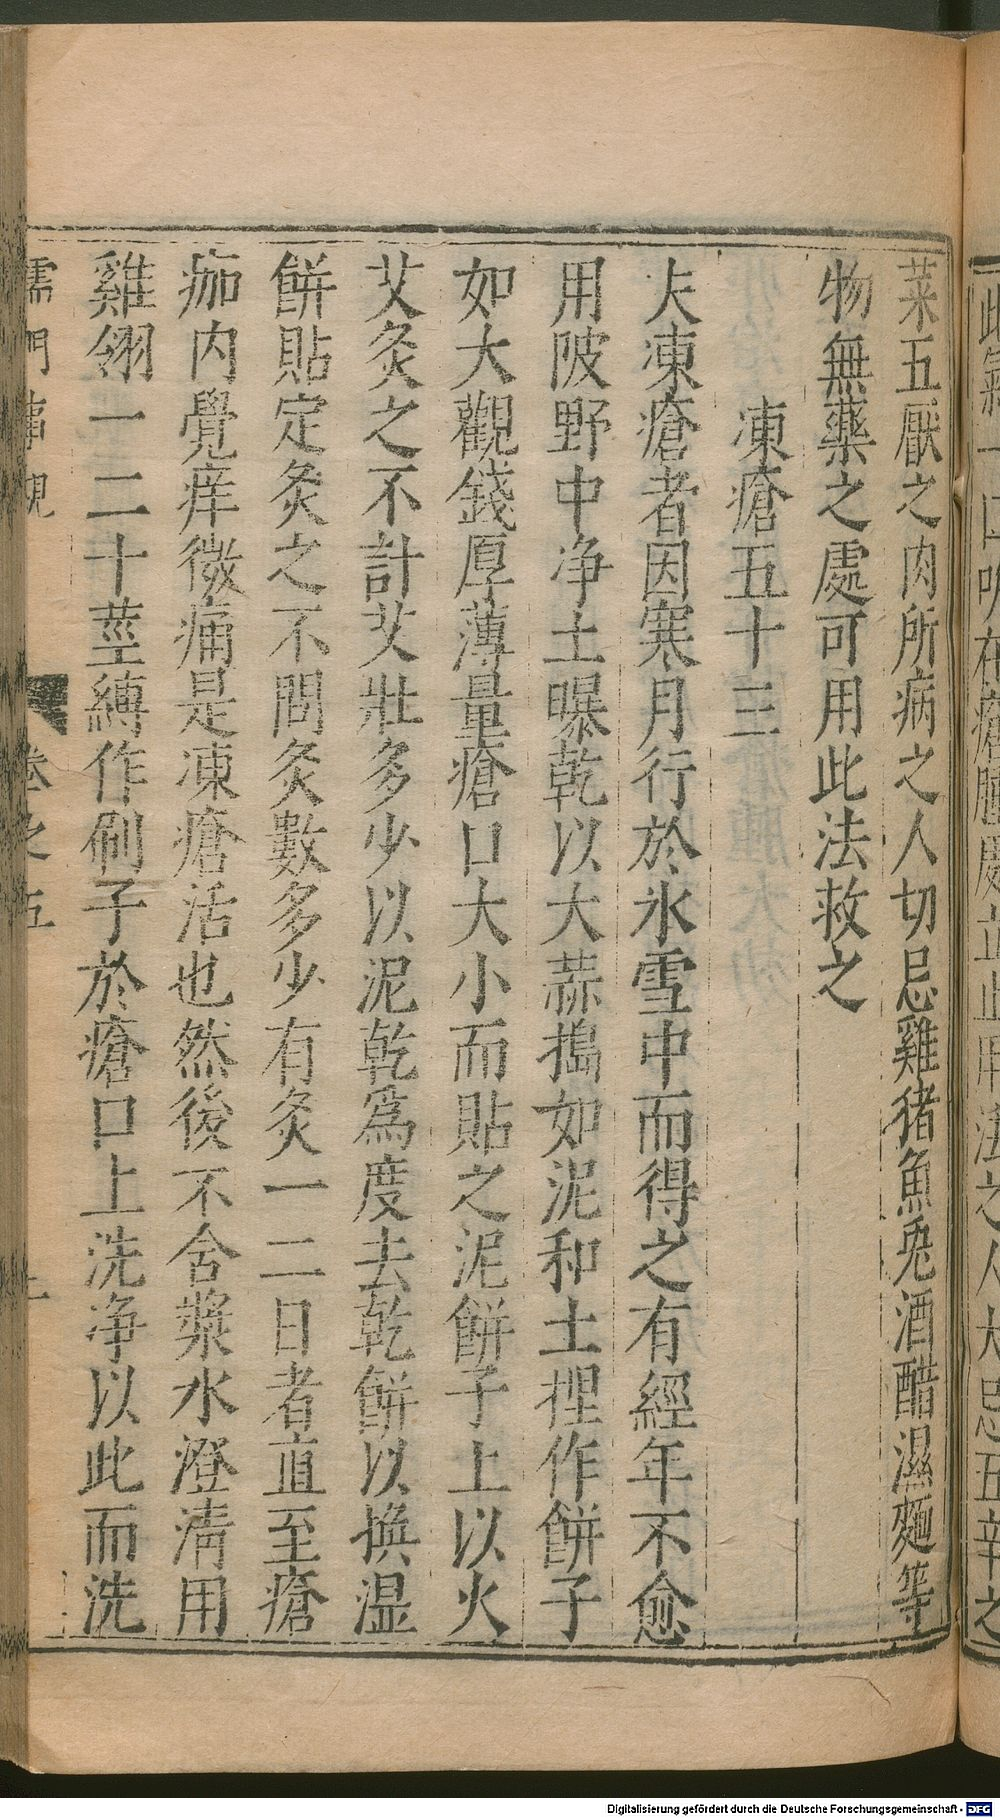 菜五厭之肉所病之人切忌雞猪魚兎酒醋濕麵等
物無藥之處可用此法救之
凍瘡五十三
夫凍瘡者因寒月行於氷雪中而得之有經年不愈
用陂野中净土曝乾以大蒜搗如泥和土捏作餅子
如大觀錢厚薄量瘡口大小而貼之泥餅子上以火
艾灸之不計艾壯多少以泥乾爲度去乾餅以換湿
餅貼定灸之不問灸數多少有灸一二日者直至瘡
痂内覺痒微痛是凍瘡活也然後不舍漿水澄清用
雞翎一二十莖縛作刷子於瘡口上洗净以此而洗
儒門事親 卷之五
Digitalisierung gefördert durch die Deutsche Forschungsgemeinschaft - DFG